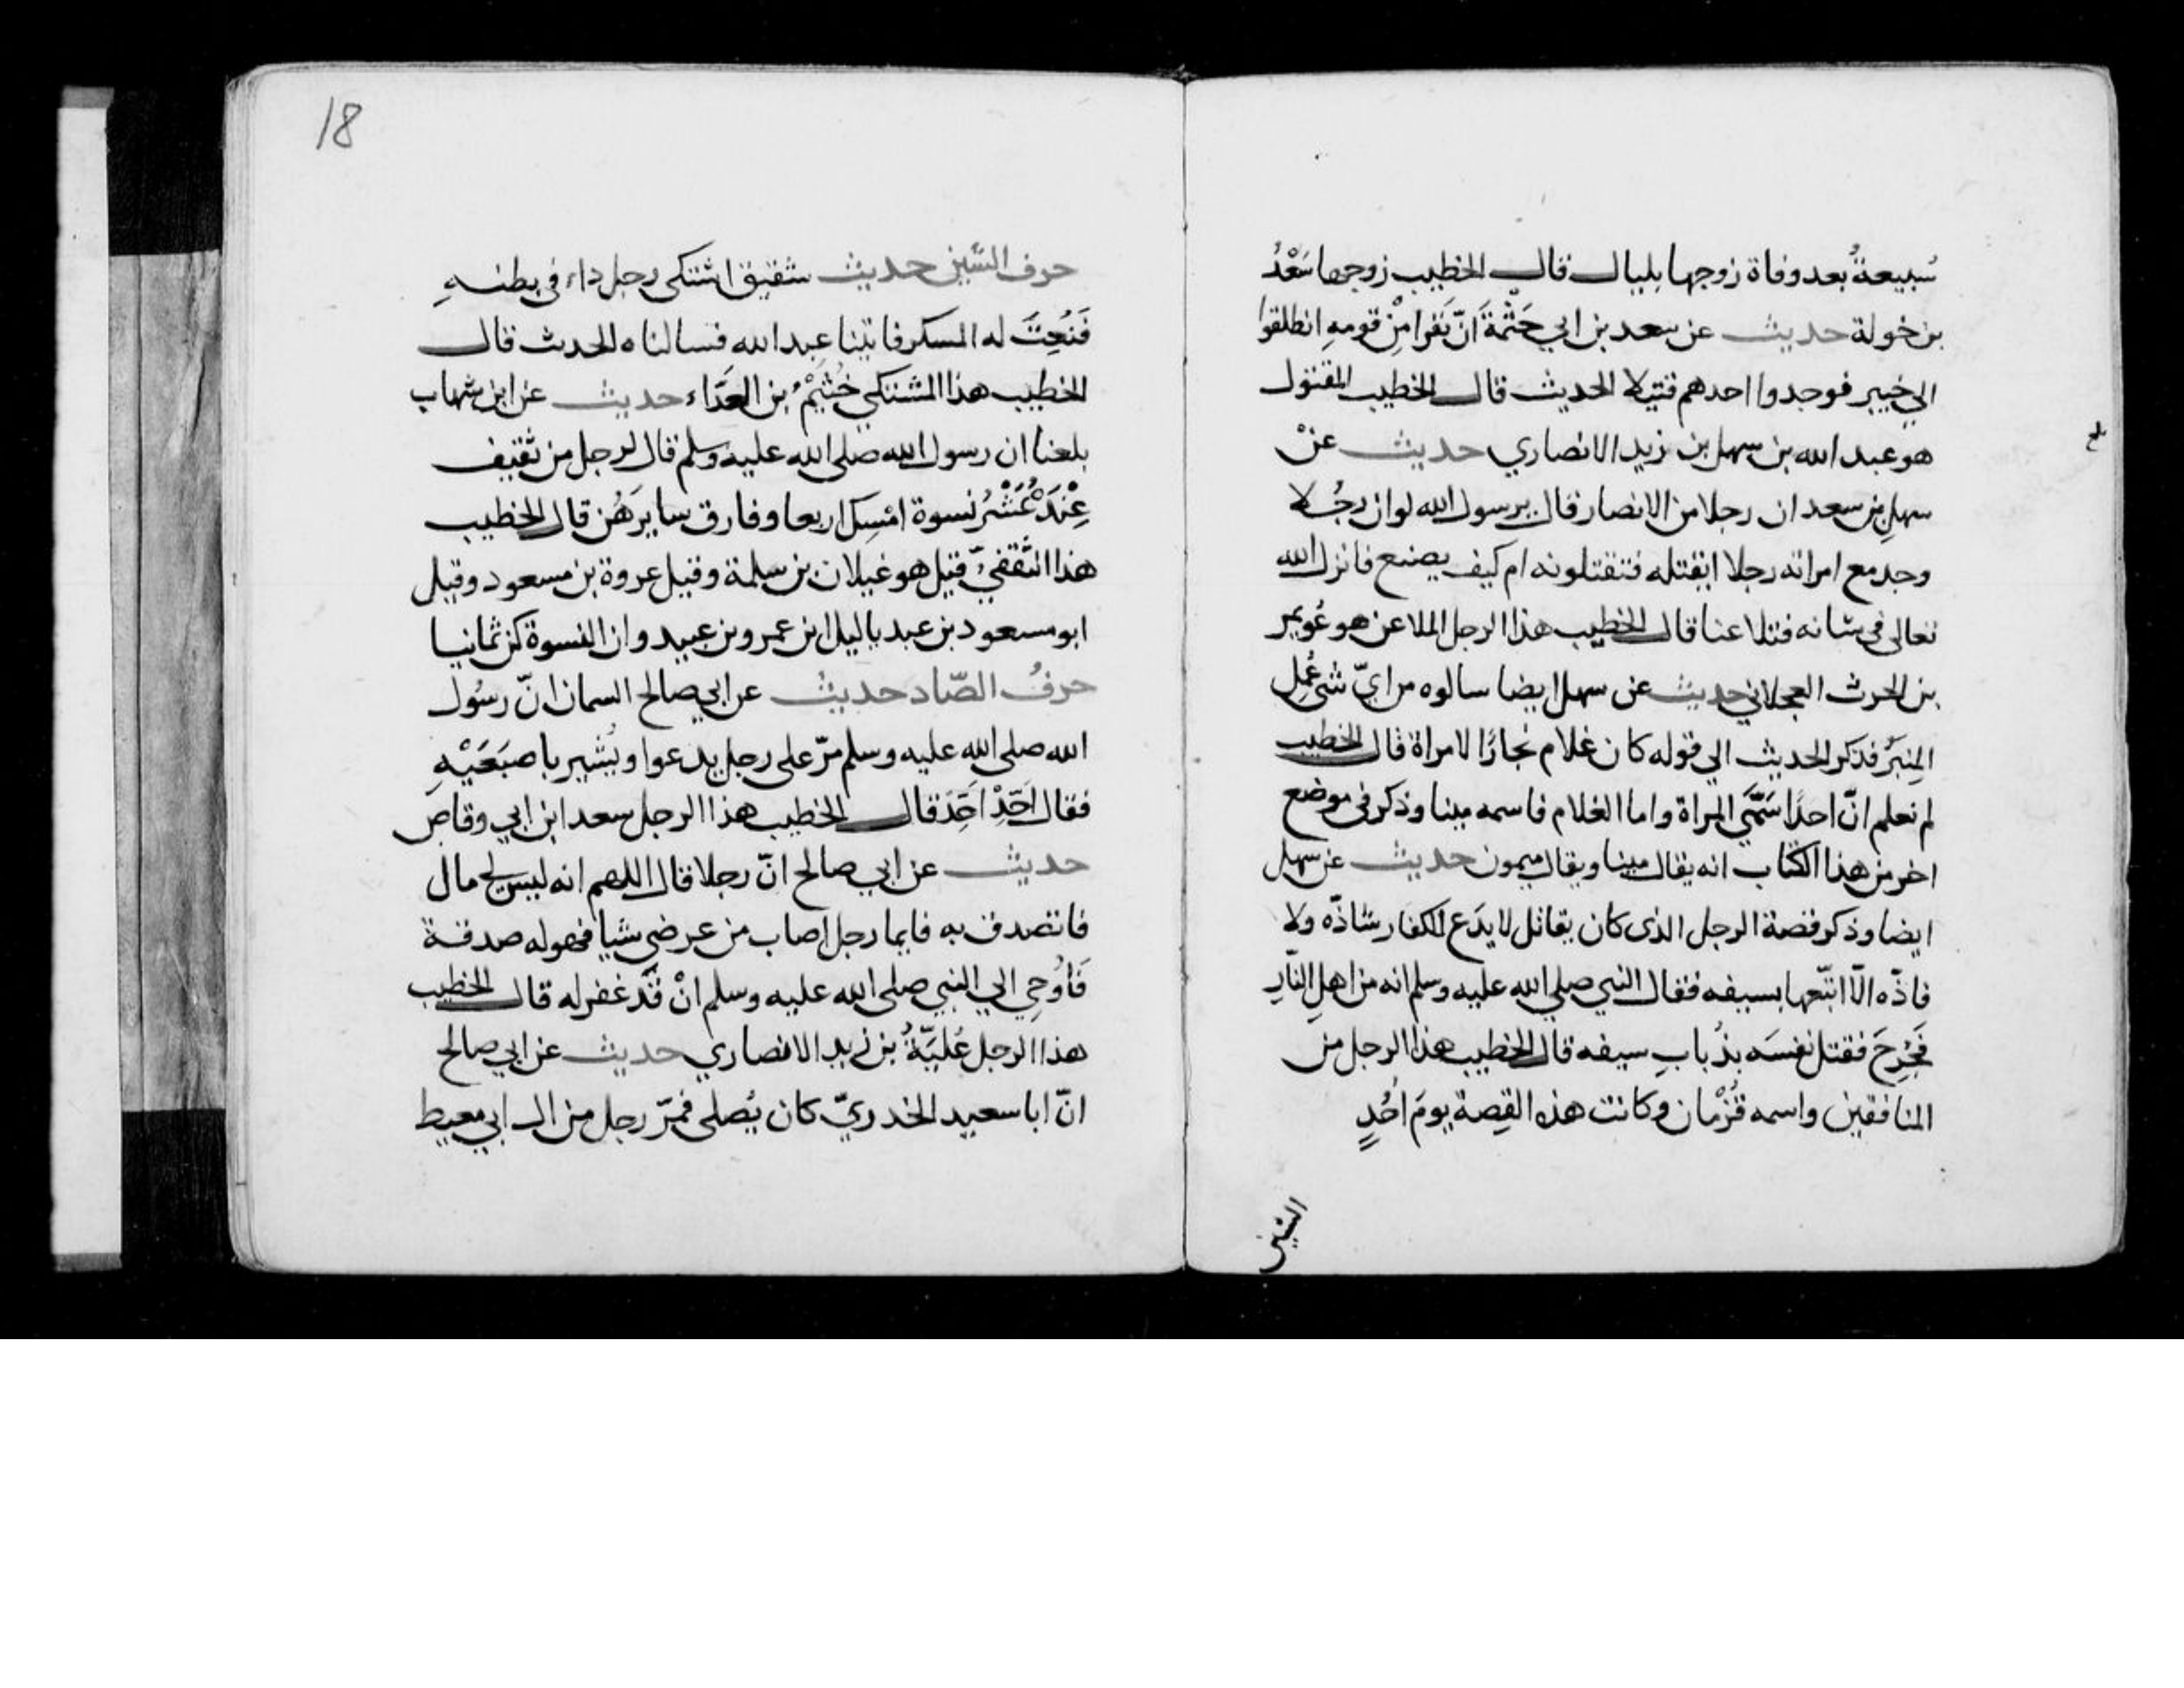 سُبيعةُ بعد وفاة زوجها بليال قال الخطيب زوجها سَعْدُ
بن خولة حديث عن سعد بن ابي حَثْمةَ انّ نَفَرا مِنْ قومهِ انطلقوا
الي خيبر فوجدوا احدهم قتيلا الحديث قال الخطيب المقتول
هو عبد الله بن سهل بن زيد الانصاري حديث عنْ
سهلِ بن سعد ان رجلا من الانصار قال يرسول الله لو ان رجُلا
وجد مع امراته رجلا ايقتله فتقتلونه ام كيف يصنع فانزل الله
تعالى في شانه فتلاعنا قال الخطيب هذا الرجل الملاعن هو عُويمر
بن الحرث العجلاني حديث عن سهل ايضا سالوه من ايّ شى عُمِل
المِنبَرُ فذكر الحديث الي قوله كان غلام نجارًا لامراة قال الخطيب
لم نعلم انّ احدًا سَمَّي المراة واما الغلام فاسمه مينا وذكر في موضع
اخر من هذا الكتاب انه يقال مينا ويقال ميمون حديث عن سهل
ايضا وذكر قصة الرجل الذى كان يقاتل لا يدَع للكفار شاذّه ولا
فاذّه الّا اتّبعها بسيفه فقال النبي صلي الله عليه وسلم انه من اهلِ النّارِ
فَجُرِحَ فقتل نفسَه بذُبابِ سيفه قال الخطيب هذا الرجل من
المنافقين واسمه قُزْمان وكانت هذه القِصة يومَ اُحُدٍ
الشين
18
حرف الشّين حديث شقيق اشتكى رجل داء في بطنهِ
فَنُعِتَ له المسكر فاتينا عبد الله فسالناه الحديث قال
الخطيب هذا المشتكي خُثَيْمُ بن العَدّاء حديث عن ابن شهاب
بلغنا ان رسول الله صلى الله عليه وسلم قال لرجل من ثقيف
عِنْدَهُ عَشْرُ نسوة امْسِك اربعا وفارق سايرَهُن قال الخطيب
هذا الثقفيّ قيل هو غيلان بن سلمة وقيل عروة بن مسعود وقيل
ابو مسعود بن عبد ياليل ابن عمرو بن عبيد وان النسوة كن ثمانيا
حرفُ الصّاد حديثُ عن ابي صالح السمان انّ رسُول
الله صلى الله عليه وسلم مرّ على رجل يدعوا ويُشير باصبَعَيْهِ
فقال اَحِّدْ اَحِّدْ قال الخطيب هذا الرجل سعد ابن ابي وقاص
حديث عن ابي صالح انّ رجلا قال اللهم انه ليس لي مال
فاتصدق به فايما رجل اصاب من عرضي شيا فهو له صدقة
فَاُوحِي الي النبي صلى الله عليه وسلم انْ قَد غفر له قال الخطيب
هذا الرجل عُلبَةُ بن زيد الانصاري حديث عن ابي صالح
انّ ابا سعيد الخدريّ كان يُصلي فمرّ رجل من ال ابي معيط